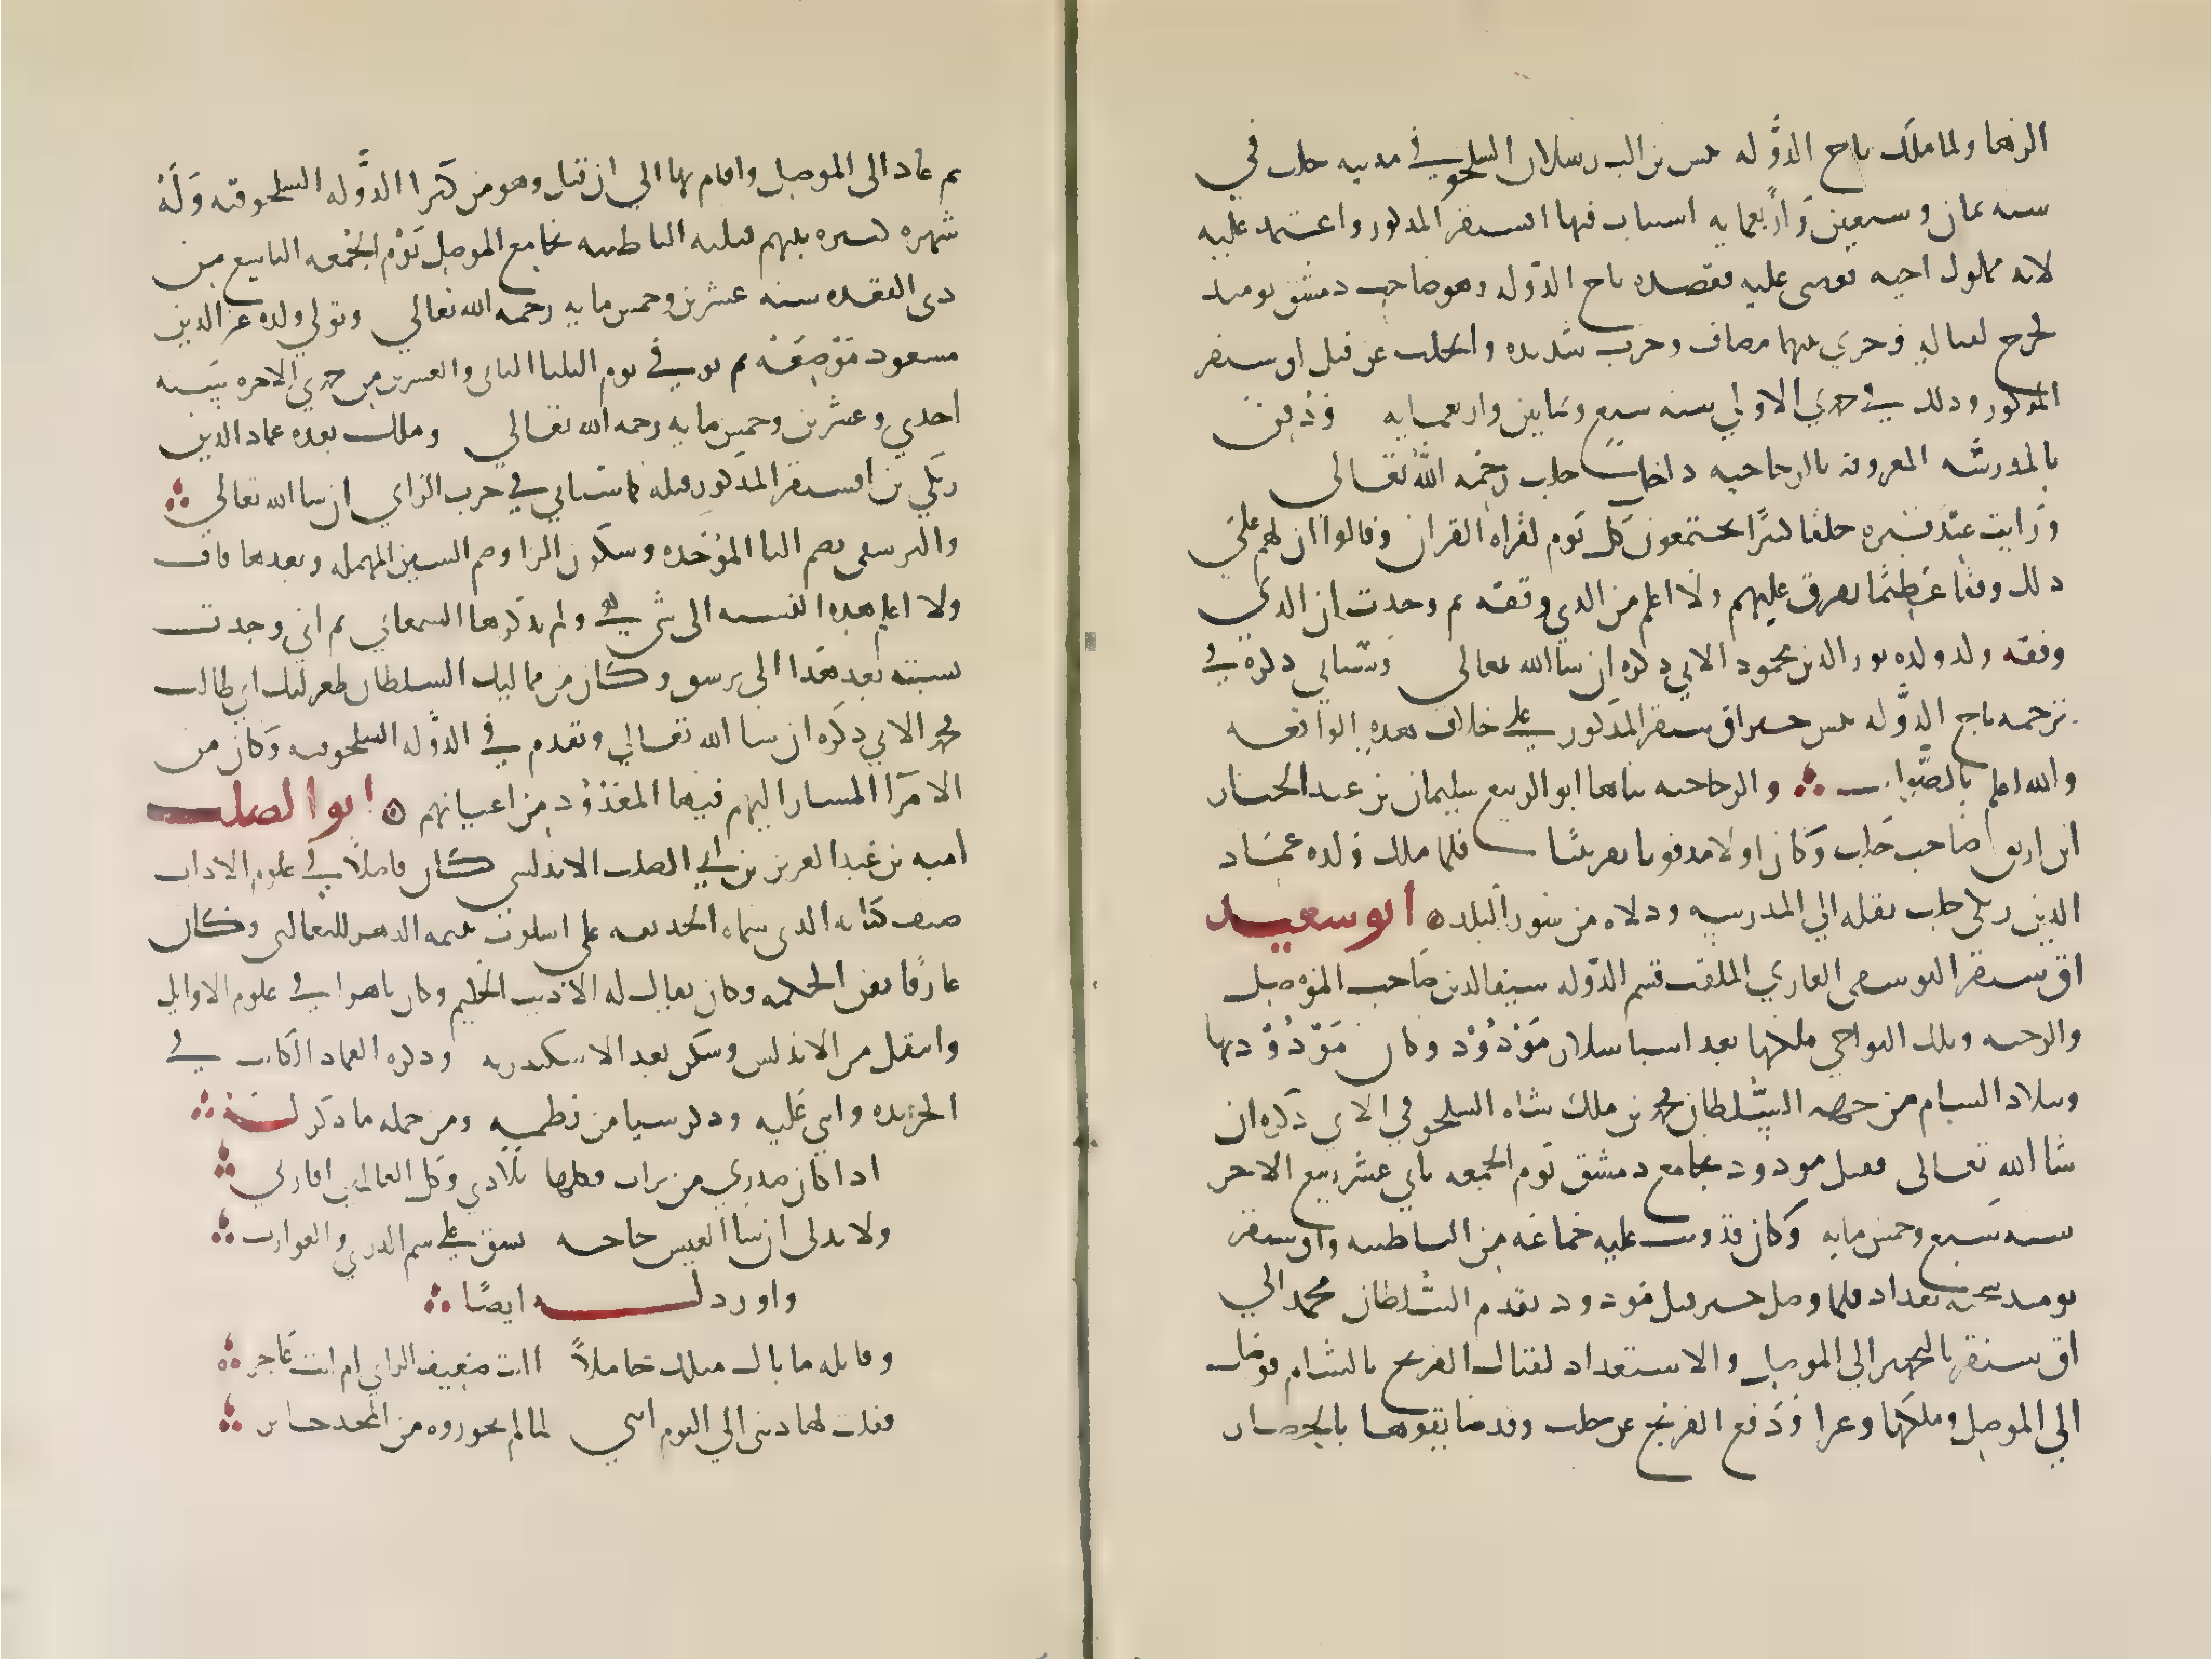 الرها ولما ملك تاج الدوله تتش بن الب رسلان السلجوقي في مدينه حلب في
سنه ثمان وسبعين واربعمايه استناب فيها اقسنقر المذكور واعتمد عليه
لانه مملوك اخيه فعصى عليه فقصده تاج الدوله وهو صاحب دمشق يوميذ
فخرج لقتاله وجري بينهما مصاف وحرب شديده وانجلت عن قتل اق سنقر
المذكور وذلك في جمدي الاولي سنه سبع وثمانين واربعمايه ودفن
بالمدرسه المعروفه بالزجاجيه داخل حلب رحمه الله تعالى
ورايت عند قبره خلقا كثيرا يجتمعون كل يوم لقراه القران وقالوا ان لهم علي
ذلك وقفا عظيما يفرق عليهم ولا اعلم من الذي وقفه ثم وجدت ان الذي
وقفه ولد ولده نور الدين محمود الاتي ذكره ان شا الله تعالى وسياتي ذكره في
ترجمه تاج الدوله تتش خبر اق سنقر المذكور علي خلاف هذه الواقعه
والله اعلم بالصواب والزجاجيه بناها ابو الربيع سليمان بن عبد الجبار
ابن ارتق صاحب حلب وكان اولا مدفونا بقرنبيا فلما ملك ولده عماد
الدين زنكي حلب نقله الي المدرسه ودلاه من سور البلد ه ابو سعيد
اق سنقر البرسقي الغازي الملقب قسيم الدوله سيف الدين صاحب الموصل
والرحبه وتلك النواحي ملكها بعد اسباسلار مودود وكان مودود بها
وببلاد الشام من جهه السلطان محمد بن ملك شاه السلجوقي الاتي ذكره ان
شا الله تعالى فقتل مودود بجامع دمشق يوم الجمعه ثاني عشر ربيع الاخر
سنه سبع وخمس مايه وكان قد وثب عليه جماعه من الباطنيه واق سنقر
يوميذ شحنه بغداد فلما وصل خبر قتل مودود تقدم السلطان محمد الي
اق سنقر بالتجهيز الي الموصل والاستعداد لقتال الفرنج بالشام فوصل
الي الموصل وملكها وغزا ودفع الفرنج عن حلب وقد ضايقوها بالحصار
ثم عاد الى الموصل واقام بها الي ان قتل وهو من كبرا الدوله السلجوقيه وله
شهره كبيره بينهم قتلته الباطنيه بجامع الموصل يوم الجمعه التاسع من
ذي القعده سنه عشرين وخمس مايه رحمه الله تعالي وتولي ولده عز الدين
مسعود موضعه ثم توفي في يوم الثلثا الثاني والعشرين من جمدي الاخره سنه
احدي وعشرين وخمس مايه رحمه الله تعالي وملك بعده عماد الدين
زنكي بن اقسنقر المذكور قبله كما سياتي في حرف الزاي ان شا الله تعالي
والبرسقي بضم البا الموحده وسكون الرا وضم السين المهمله وبعدها قاف
ولا اعلم هذه النسبه الى شي هي ولم يذكرها السمعاني ثم اني وجدت
نسبته بعد هذا الي برسق وكان من مماليك السلطان طغرلبك ابي طالب
محمد الاتي ذكره ان شا الله تعالي وتقدم في الدوله السلجوقيه وكان من
الامرا المشار اليهم فيها المعدود من اعيانهم ه ابو الصلت
اميه بن عبد العزيز بن ابي الصلت الاندلسي كان فاضلا في علوم الاداب
صنف كتابه الذي سماه الحديقه على اسلوب يتيمه الدهر للثعالبي وكان
عارفا بفن الحكمه وكان يقال له الاديب الحكيم وكان ماهرا في علوم الاوايل
وانتقل من الاندلس وسكن بعد الاسكندريه وذكره العماد الكاتب في
الخريده واثني عليه وذكر شيا من نظمه ومن جمله ما ذكر له
اذا كان اصلي من تراب فكلها بلادي وكل العالمين اقاربي
ولا بد لي ان اسال العيس حاجه تشق علي شم الذري والغوارب
واورد له ايضا
وقايله ما بال مثلك خاملا اانت ضعيف الراي ام انت عاجز
فقلت لها ذنبي الي القوم انني لما لم يحوزوه من المجد حايز